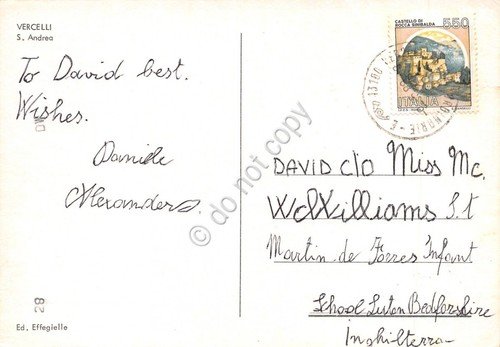 VERCELLI
S. Andrea
To David best.
Wishes.
Daniele
Alexanders.
CASTELLO DI
ROCCA SINIBALDA
550
ITALIA
13100
DAVID C/O Miss Mc.
Williams St
Martin de Porres Infant
School Luton Bedforshire
Inghilterra
82
Ed. Effegiello
do not copy